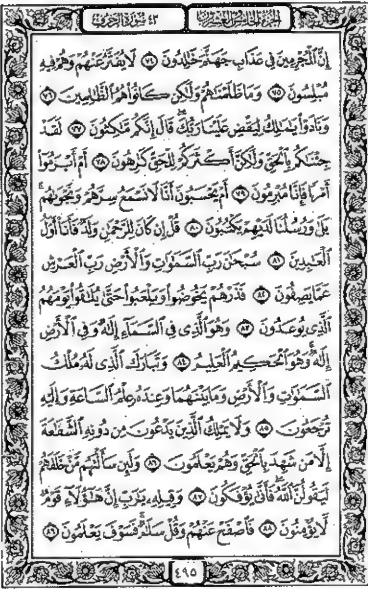 الجزء الخامس والعشرون ٤٣ سورة الزخرف
إِنَّ ٱلْمُجْرِمِينَ فِى عَذَابِ جَهَنَّمَ خَٰلِدُونَ ٧٤ لَا يُفَتَّرُ عَنْهُمْ وَهُمْ فِيهِ
مُبْلِسُونَ ٧٥ وَمَا ظَلَمْنَٰهُمْ وَلَٰكِن كَانُوا۟ هُمُ ٱلظَّٰلِمِينَ ٧٦
وَنَادَوْا۟ يَٰمَٰلِكُ لِيَقْضِ عَلَيْنَا رَبُّكَ قَالَ إِنَّكُم مَّٰكِثُونَ ٧٧ لَقَدْ
جِئْنَٰكُم بِٱلْحَقِّ وَلَٰكِنَّ أَكْثَرَكُمْ لِلْحَقِّ كَٰرِهُونَ ٧٨ أَمْ أَبْرَمُوٓا۟
أَمْرًا فَإِنَّا مُبْرِمُونَ ٧٩ أَمْ يَحْسَبُونَ أَنَّا لَا نَسْمَعُ سِرَّهُمْ وَنَجْوَىٰهُم
بَلَىٰ وَرُسُلُنَا لَدَيْهِمْ يَكْتُبُونَ ٨٠ قُلْ إِن كَانَ لِلرَّحْمَٰنِ وَلَدٌ فَأَنَا۠ أَوَّلُ
ٱلْعَٰبِدِينَ ٨١ سُبْحَٰنَ رَبِّ ٱلسَّمَٰوَٰتِ وَٱلْأَرْضِ رَبِّ ٱلْعَرْشِ
عَمَّا يَصِفُونَ ٨٢ فَذَرْهُمْ يَخُوضُوا۟ وَيَلْعَبُوا۟ حَتَّىٰ يُلَٰقُوا۟ يَوْمَهُمُ
ٱلَّذِى يُوعَدُونَ ٨٣ وَهُوَ ٱلَّذِى فِى ٱلسَّمَآءِ إِلَٰهٌ وَفِى ٱلْأَرْضِ
إِلَٰهٌ وَهُوَ ٱلْحَكِيمُ ٱلْعَلِيمُ ٨٤ وَتَبَارَكَ ٱلَّذِى لَهُۥ مُلْكُ
ٱلسَّمَٰوَٰتِ وَٱلْأَرْضِ وَمَا بَيْنَهُمَا وَعِندَهُۥ عِلْمُ ٱلسَّاعَةِ وَإِلَيْهِ
تُرْجَعُونَ ٨٥ وَلَا يَمْلِكُ ٱلَّذِينَ يَدْعُونَ مِن دُونِهِ ٱلشَّفَٰعَةَ
إِلَّا مَن شَهِدَ بِٱلْحَقِّ وَهُمْ يَعْلَمُونَ ٨٦ وَلَئِن سَأَلْتَهُم مَّنْ خَلَقَهُمْ
لَيَقُولُنَّ ٱللَّهُ فَأَنَّىٰ يُؤْفَكُونَ ٨٧ وَقِيلِهِۦ يَٰرَبِّ إِنَّ هَٰٓؤُلَآءِ قَوْمٌ
لَّا يُؤْمِنُونَ ٨٨ فَٱصْفَحْ عَنْهُمْ وَقُلْ سَلَٰمٌ فَسَوْفَ يَعْلَمُونَ ٨٩
٤٩٥